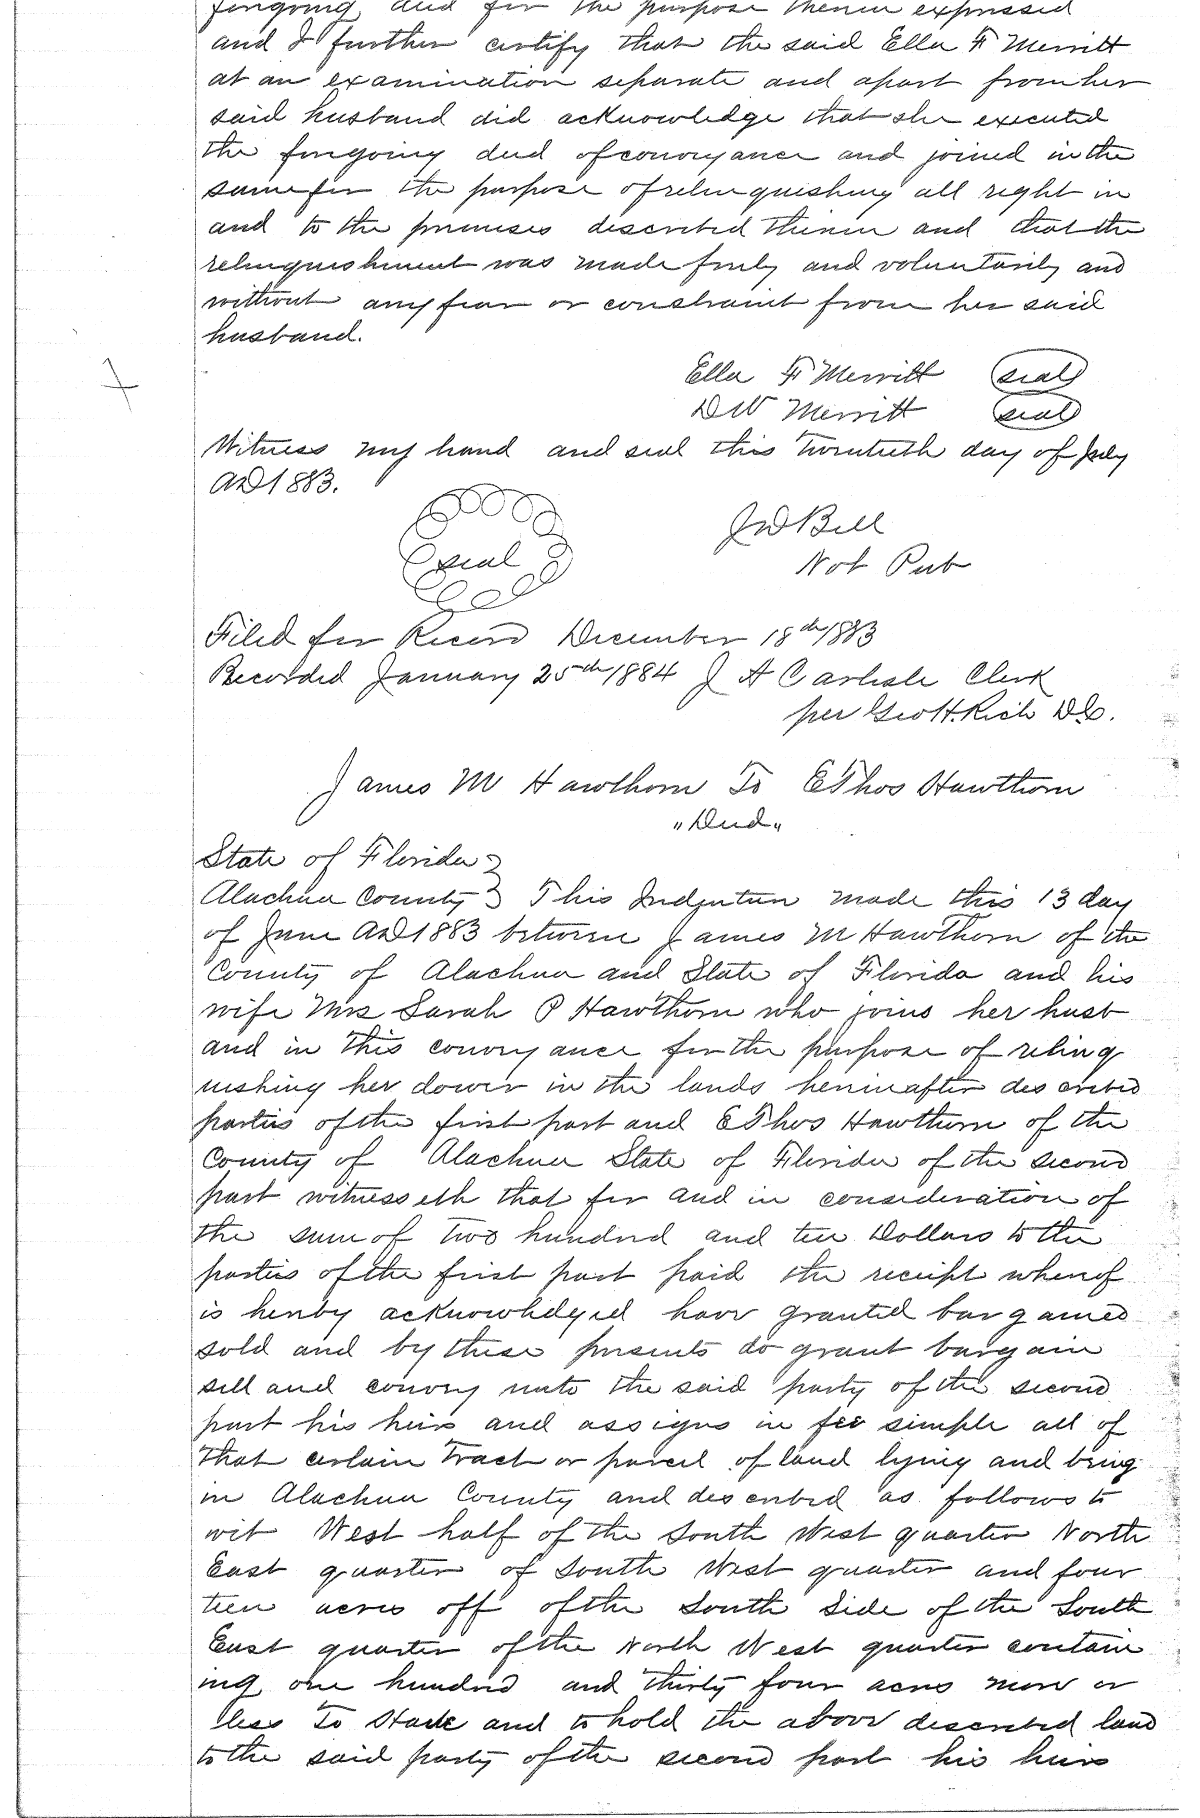 foregoing and for the purpose therein expressed
and I further certify that the said Ella F Merritt
at an examination separate and apart from her
said husband did acknowledge that she executed
the foregoing deed of conveyance and joined in the
same for the purpose of relinquishing all right in
and to the premises described therein and that the
relinquishment was made freely and voluntarily and
without any fear or constraint from her said
husband.
Ella F Merritt seal
D W Merritt seal
Witness my hand and seal this twentieth day of July
AD 1883.
J W Bell
seal
Not Pub
Filed for Record December 18th 1883
Recorded January 25th 1884 J A Carlisle Clerk
per Geo H. Rich D.C.
James M Hawthorn To E Thos Hawthorn
"Deed"
State of Florida }
Alachua County } This Indenture made this 13 day
of June AD 1883 between James M Hawthorn of the
County of Alachua and State of Florida and his
wife Mrs Sarah P Hawthorn who joins her husb
and in this conveyance for the purpose of relinq
uishing her dower in the lands hereinafter described
parties of the first part and E Thos Hawthorn of the
County of Alachua State of Florida of the second
part witnesseth that for and in consideration of
the sum of two hundred and ten Dollars to the
parties of the first part paid the receipt whereof
is hereby acknowledged have granted bargained
sold and by these presents do grant bargain
sell and convey unto the said party of the second
part his heirs and assigns in fee simple all of
that certain tract or parcel of land lying and being
in Alachua County and described as follows to
wit West half of the South West quarter North
East quarter of South West quarter and four
teen acres off of the South Side of the South
East quarter of the North West quarter contain
ing one hundred and thirty four acres more or
less To Have and to hold the above described land
to the said party of the second part his heirs